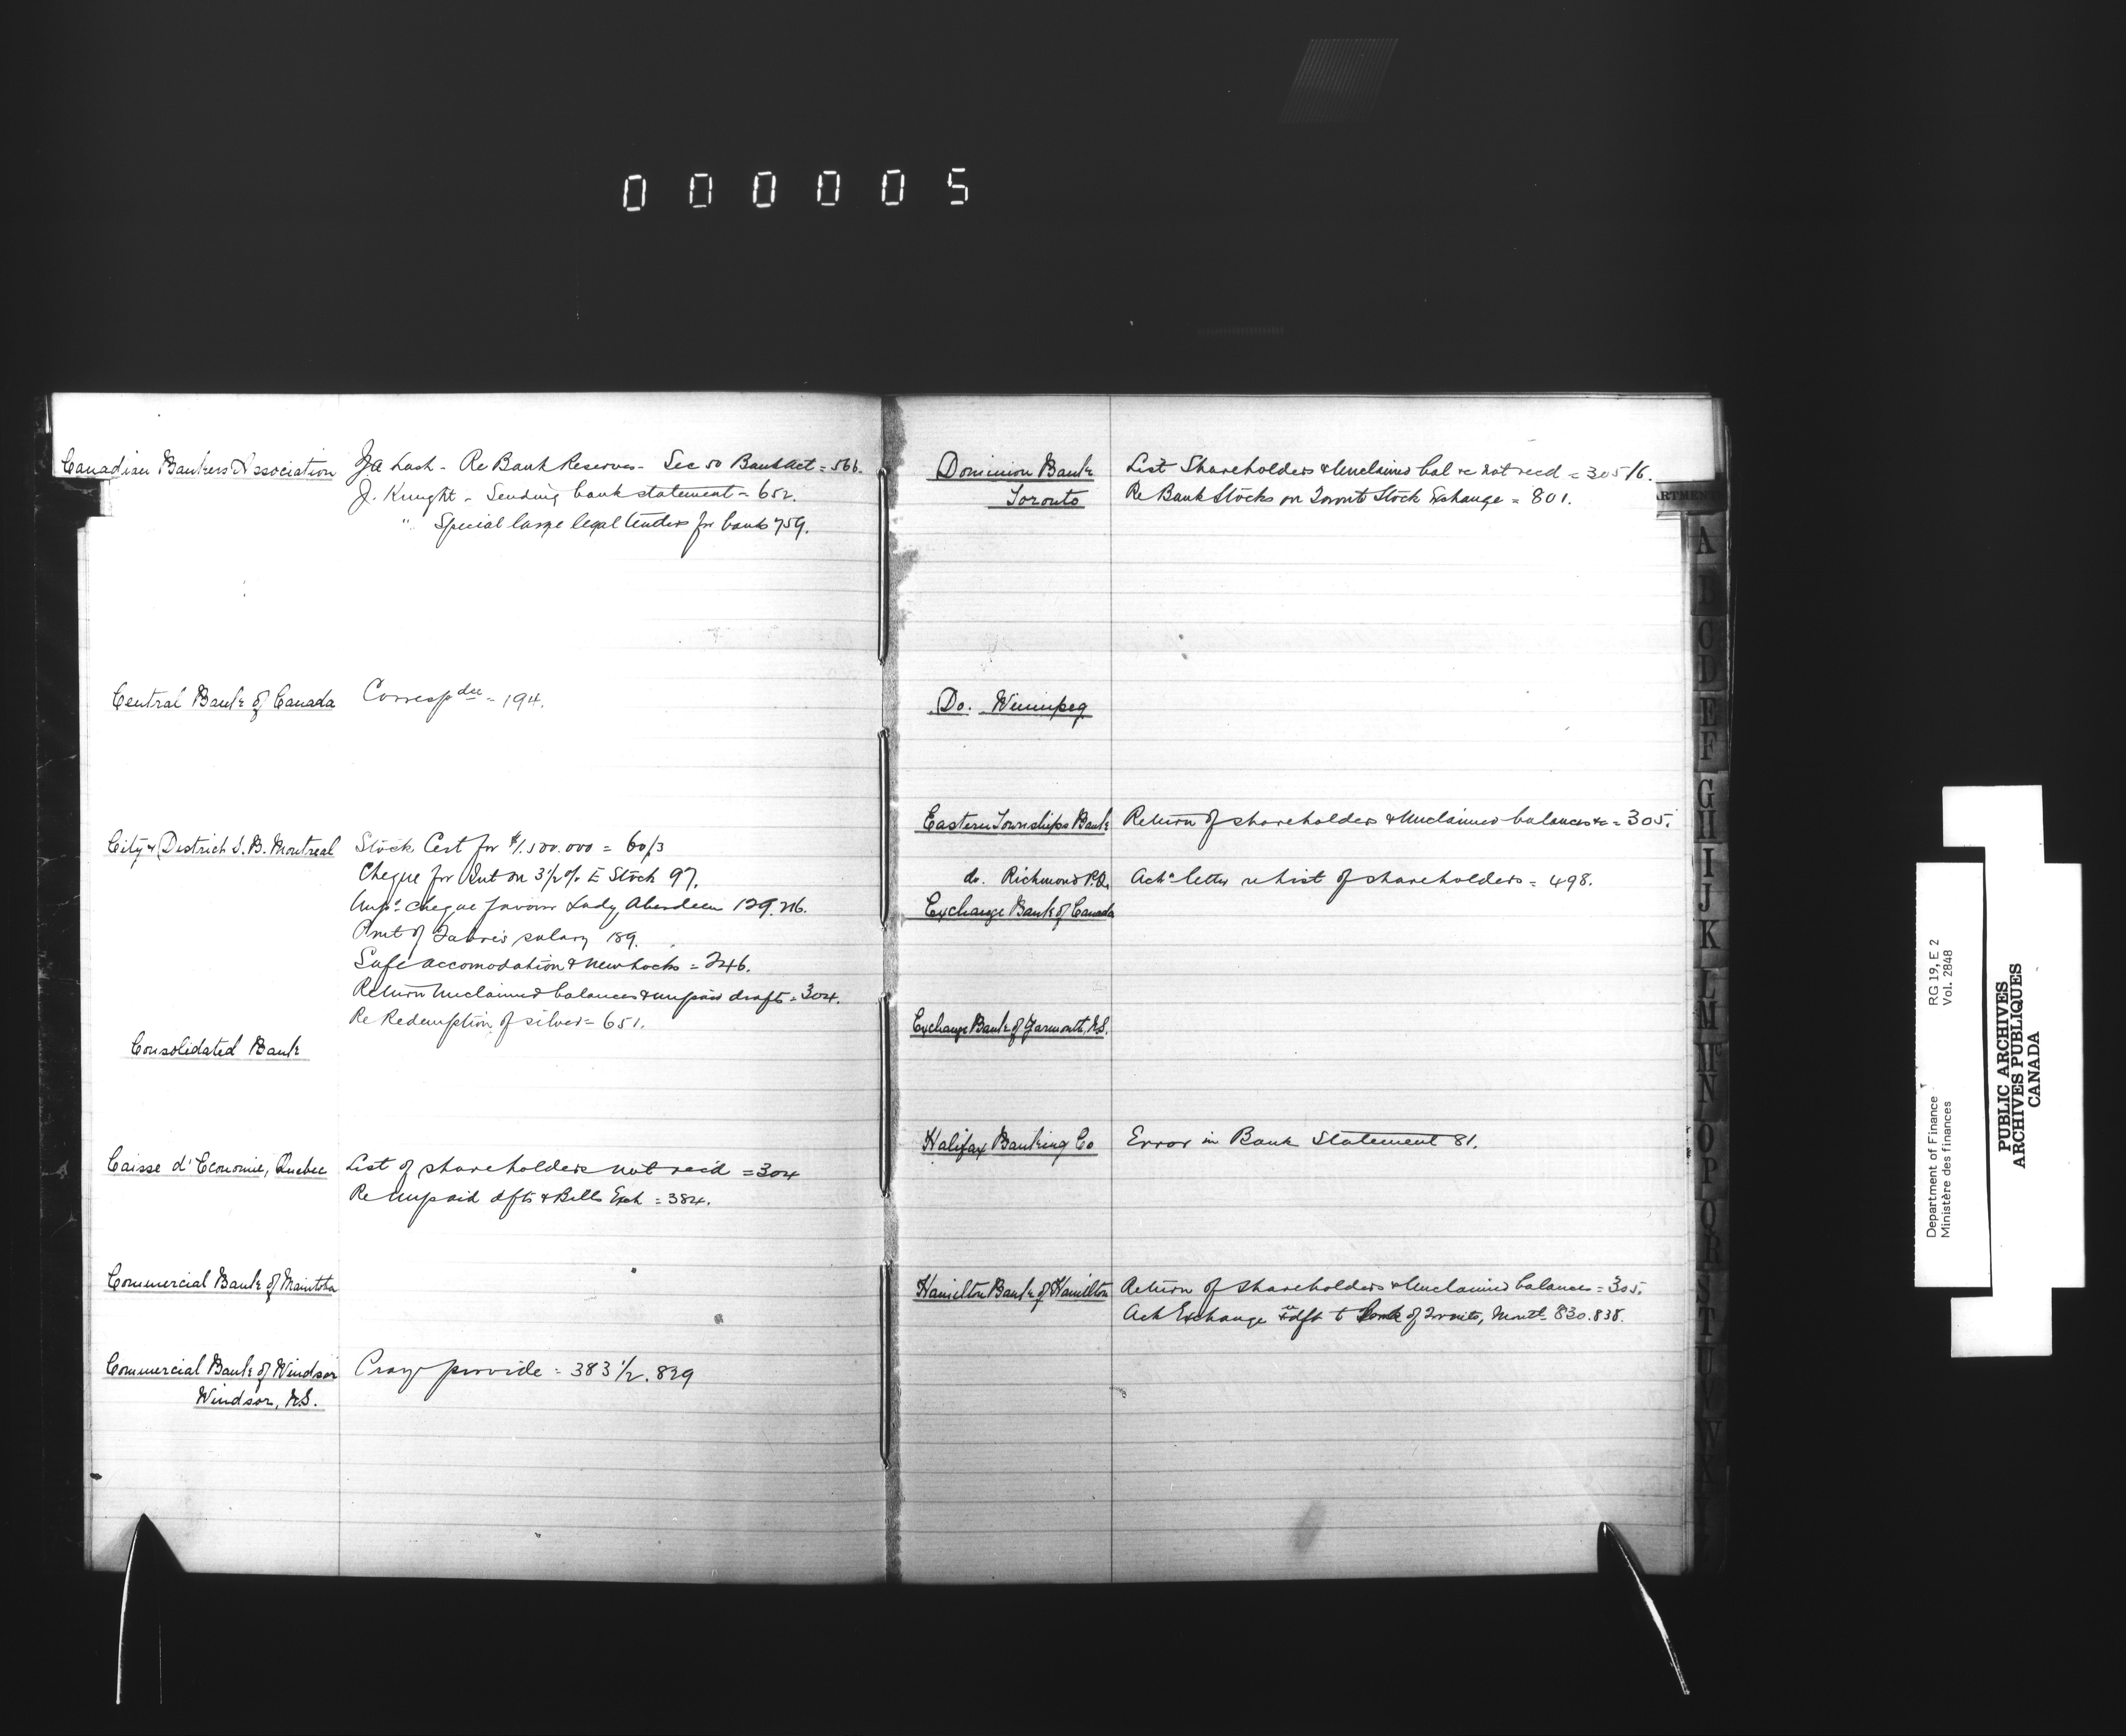 000005
Canadian Bankers Association
Z A Lash - Re Bank Reserves - Sec 50 Bank Act = 566.
J. Knight - Sending bank statement = 652.
" Special large legal tenders for banks 759.
Central Bank of Canada
Correspdce = 194.
City & District S. B. Montreal
Stock Cert for $1,500.000 = 60/3
Cheque for Int on 3½% £ Stock 97.
cheque favour Lady Aberdeen 129.
Pmt of Fabre's salary 189.
Safe accomodation & new locks = 246.
Return Unclaimed balances & unpaid drafts = 304.
Re Redemption of silver = 651.
Consolidated Bank
Caisse d'Economie, Quebec
List of shareholders not rec'd = 304
Re Unpaid dfts & Bills Exch = 384.
Commercial Bank of Manitoba
Commercial Bank of Windsor
Windsor, N.S.
provide = 383 1/2. 829
Dominion Bank
Toronto
List Shareholders & Unclaimed bal re not recd = 305/6.
Re Bank Stocks on Toronto Stock Exchange = 801.
Do. Winnipeg
Eastern Townships Bank
Return of shareholders & Unclaimed balances &c = 305.
do. Richmond P.Q.
Ackg letter re list of shareholders = 498.
Exchange Bank of Canada
Exchange Bank of Yarmouth, N.S.
Halifax Banking Co
Error in Bank Statement 81.
Hamilton Bank of Hamilton
Return of Shareholders & Unclaimed balances = 305.
Ack Exchange dft to Bank of Toronto, Montl 830.838.
ARTMENT
A
B
C
D
E
F
G
H
I
J
K
L
M
Mc
N
O
P
Q
R
S
T
U
V
W
Department of Finance
Ministère des finances
RG 19, E 2
Vol. 2848
PUBLIC ARCHIVES
ARCHIVES PUBLIQUES
CANADA